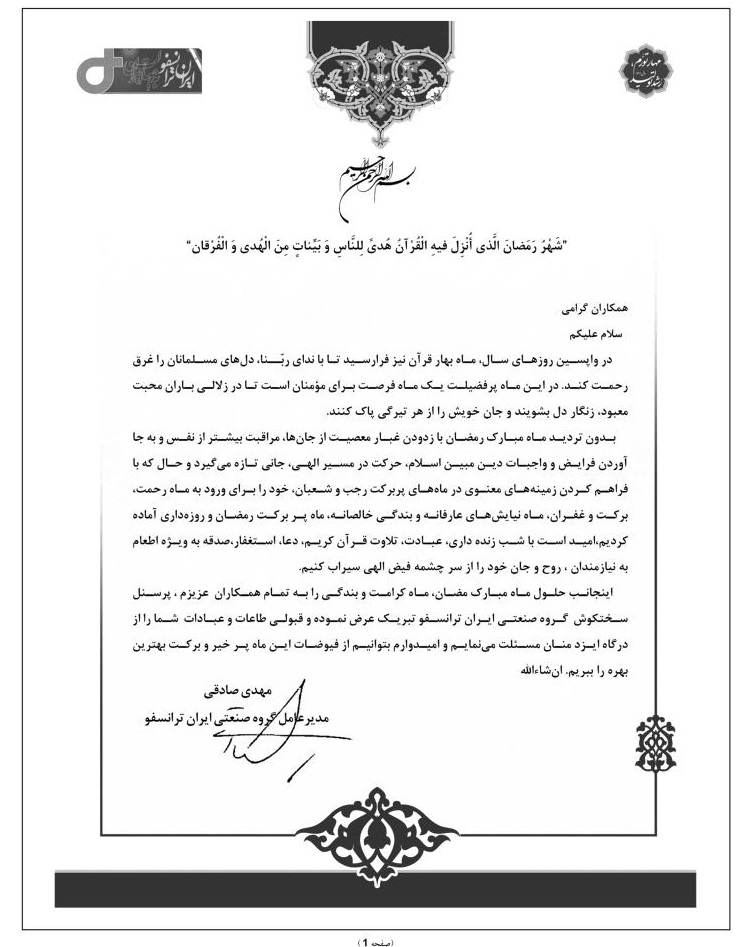 ایران ترانسفو
مهار تورم،
رشد تولید
بسم الله الرحمن الرحیم
"شَهْرُ رَمَضانَ الَّذی أُنْزِلَ فیهِ الْقُرْآنُ هُدیً لِلنَّاسِ وَ بَیِّناتٍ مِنَ الْهُدی وَ الْفُرْقان"
همکاران گرامی
سلام علیکم
در واپسین روزهای سال، ماه بهار قرآن نیز فرارسید تا با ندای ربّنا، دل‌های مسلمانان را غرق
رحمت کند. در این ماه پرفضیلت یک ماه فرصت برای مؤمنان است تا در زلالی باران محبت
معبود، زنگار دل بشویند و جان خویش را از هر تیرگی پاک کنند.
بدون تردید ماه مبارک رمضان با زدودن غبار معصیت از جان‌ها، مراقبت بیشتر از نفس و به جا
آوردن فرایض و واجبات دین مبین اسلام، حرکت در مسیر الهی، جانی تازه می‌گیرد و حال که با
فراهم کردن زمینه‌های معنوی در ماه‌های پربرکت رجب و شعبان، خود را برای ورود به ماه رحمت،
برکت و غفران، ماه نیایش‌های عارفانه و بندگی خالصانه، ماه پر برکت رمضان و روزه‌داری آماده
کردیم،امید است با شب زنده داری، عبادت، تلاوت قرآن کریم، دعا، استغفار،صدقه به ویژه اطعام
به نیازمندان ، روح و جان خود را از سر چشمه فیض الهی سیراب کنیم.
اینجانب حلول ماه مبارک مضان، ماه کرامت و بندگی را به تمام همکاران عزیزم ، پرسنل
سختکوش گروه صنعتی ایران ترانسفو تبریک عرض نموده و قبولی طاعات و عبادات شما را از
درگاه ایزد منان مسئلت می‌نمایم و امیدوارم بتوانیم از فیوضات این ماه پر خیر و برکت بهترین
بهره را ببریم. ان‌شاءالله
مهدی صادقی
مدیرعامل گروه صنعتی ایران ترانسفو
(صفحه 1)